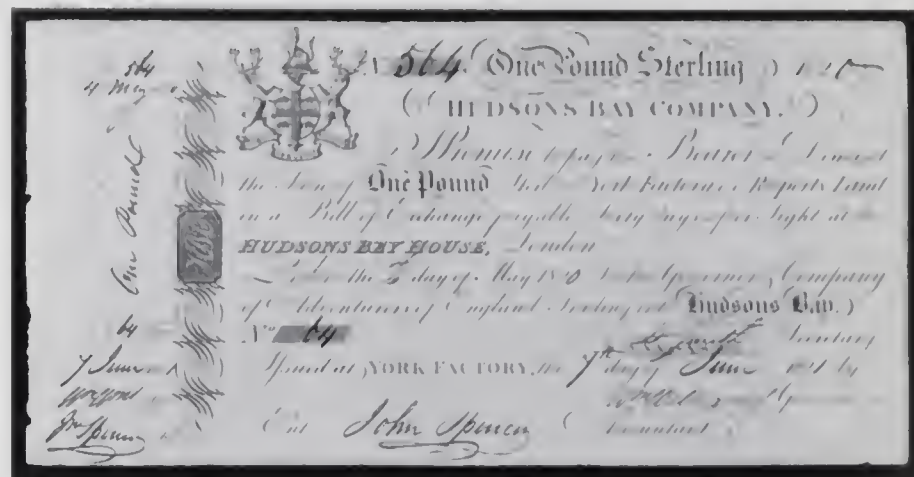 564
4 May
One Pound
HBC
64
7 June
Jno Spencer
N 564 One Pound Sterling
HUDSONS BAY COMPANY.
I Promise to pay the Bearer on Demand
the Sum of One Pound Ster. York Factory Ruperts Land
in a Bill of Exchange payable Sixty days after Sight at the
HUDSONS BAY HOUSE, London
the day of May 1820 for the Governor, Company
of Adventurers of England trading into Hudsons Bay.
No 64 Secretary
Issued at YORK FACTORY, the 7th day of June by
Ent John Spencer Accountant